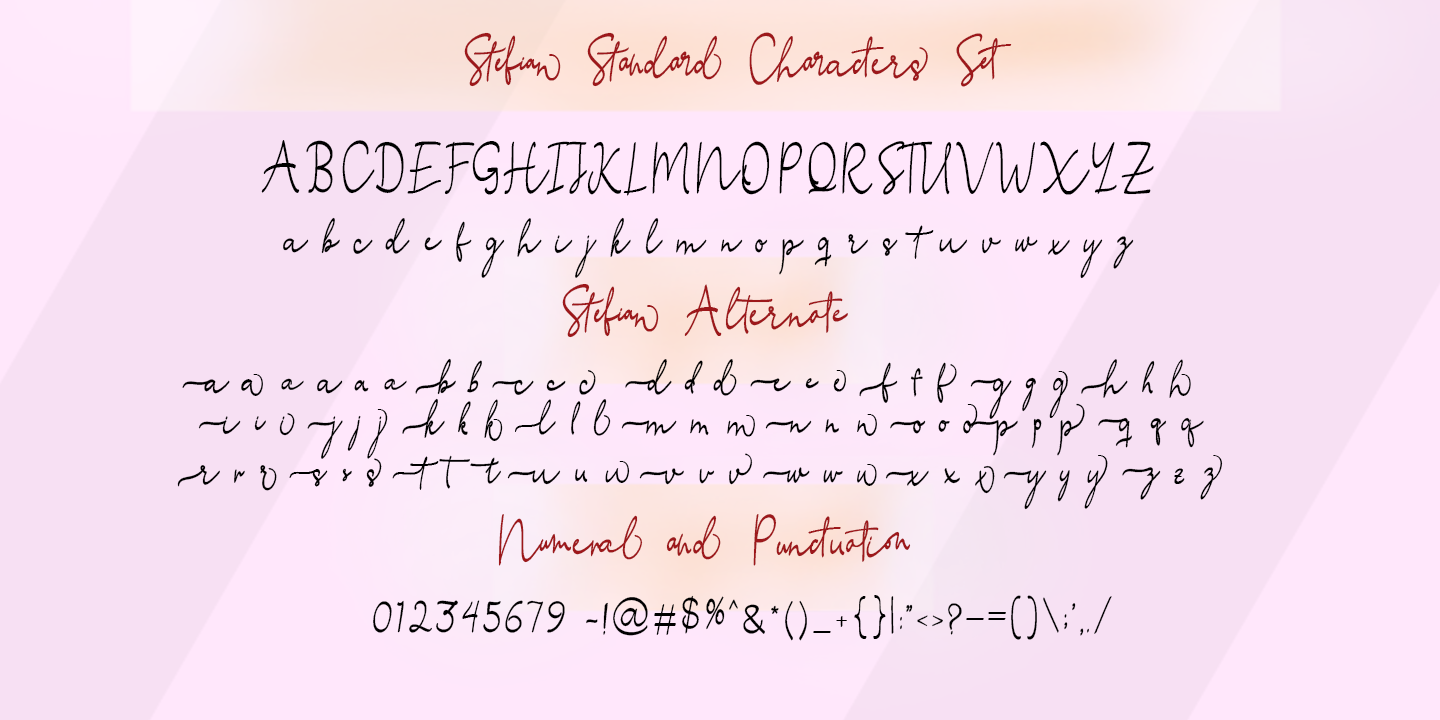 Stefian Standard Characters Set
ABCDEFGHIJKLMNOPQRSTUVWXYZ
a b c d e f g h i j k l m n o p q r s t u v w x y z
Stefian Alternate
a a a a a a b b c c c d d d e e e f f f g g g h h h
i i i j j j k k k l l l m m m n n n o o o p p p q q q
r r r s s s t T t u u u v v v w w w x x x y y y z z z
Numeral and Punctuation
012345679 ~!@#$%^&*()_+{}|:"<>?-=[]\;',./